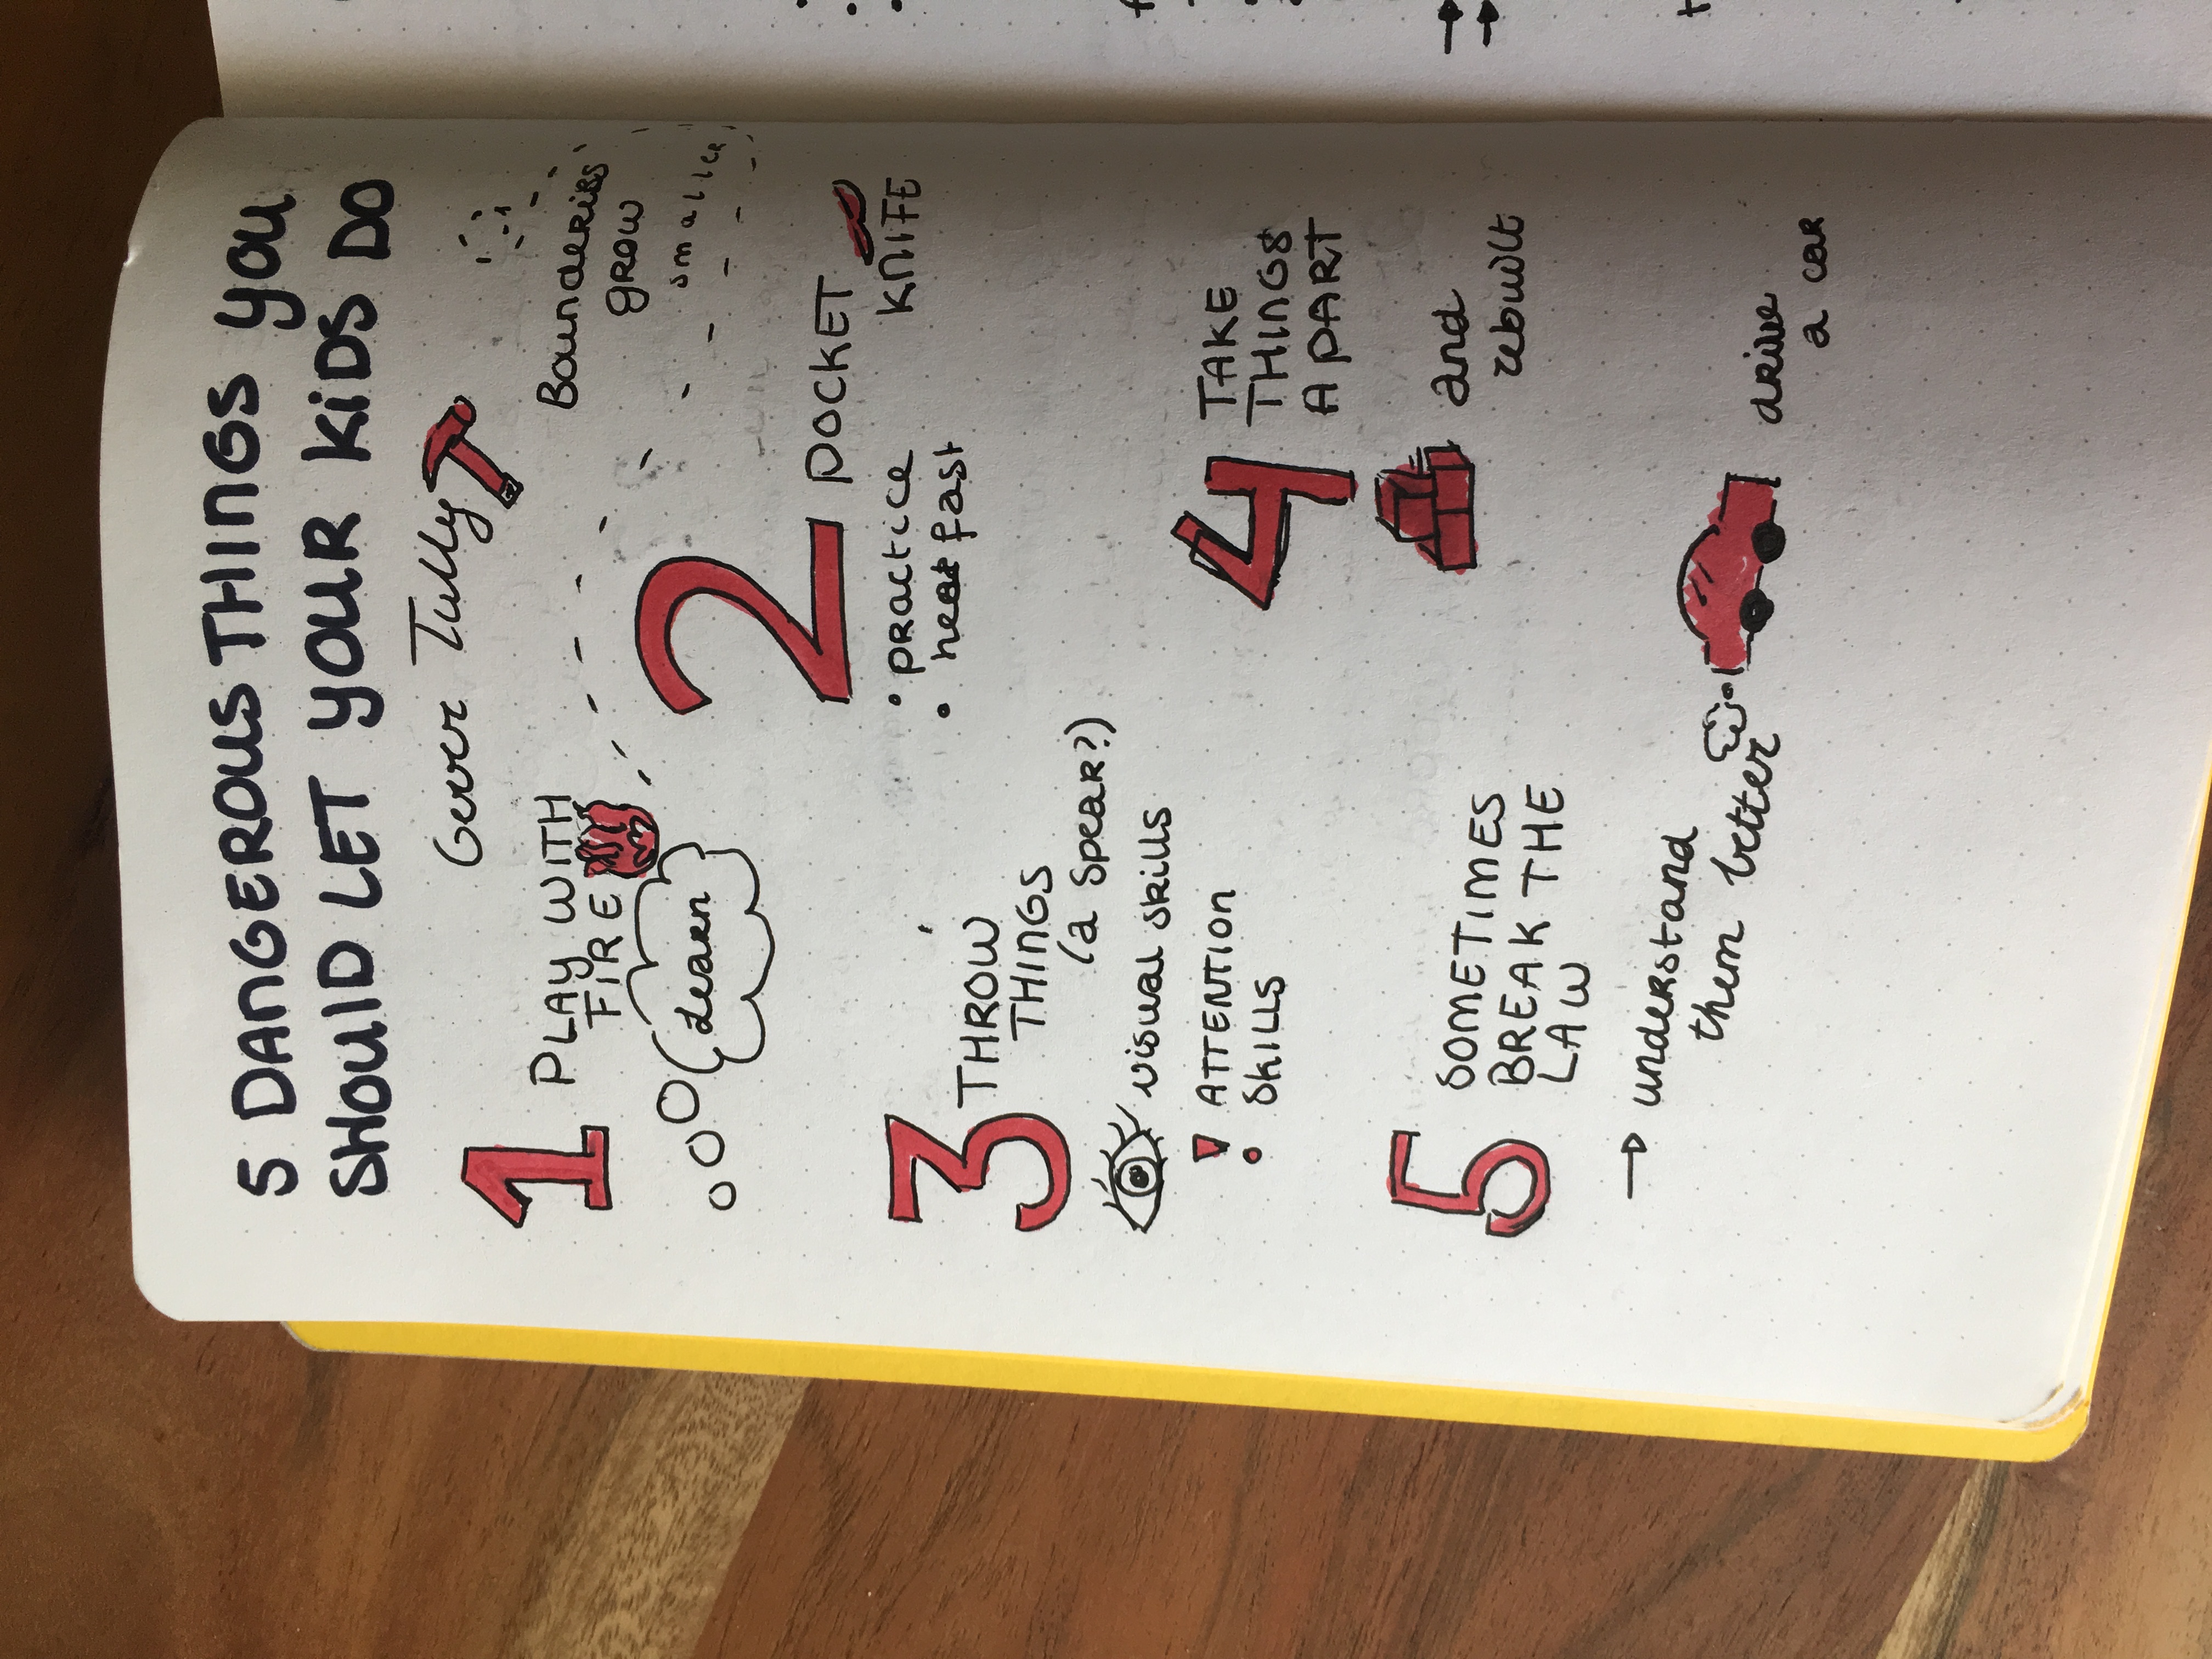 5 DANGEROUS THINGS YOU
SHOULD LET YOUR KIDS DO
Gever Tully
1 PLAY WITH
FIRE
Learn
Bounderies
grow
smaller
2 POCKET
KNIFE
• practice
• fast
3 THROW
THINGS
(a spear?)
visual skills
! ATTENTION
SKILLS
4 TAKE
THINGS
A PART
and
rebuilt
5 SOMETIMES
BREAK THE
LAW
→ understand
them better
drive
a car